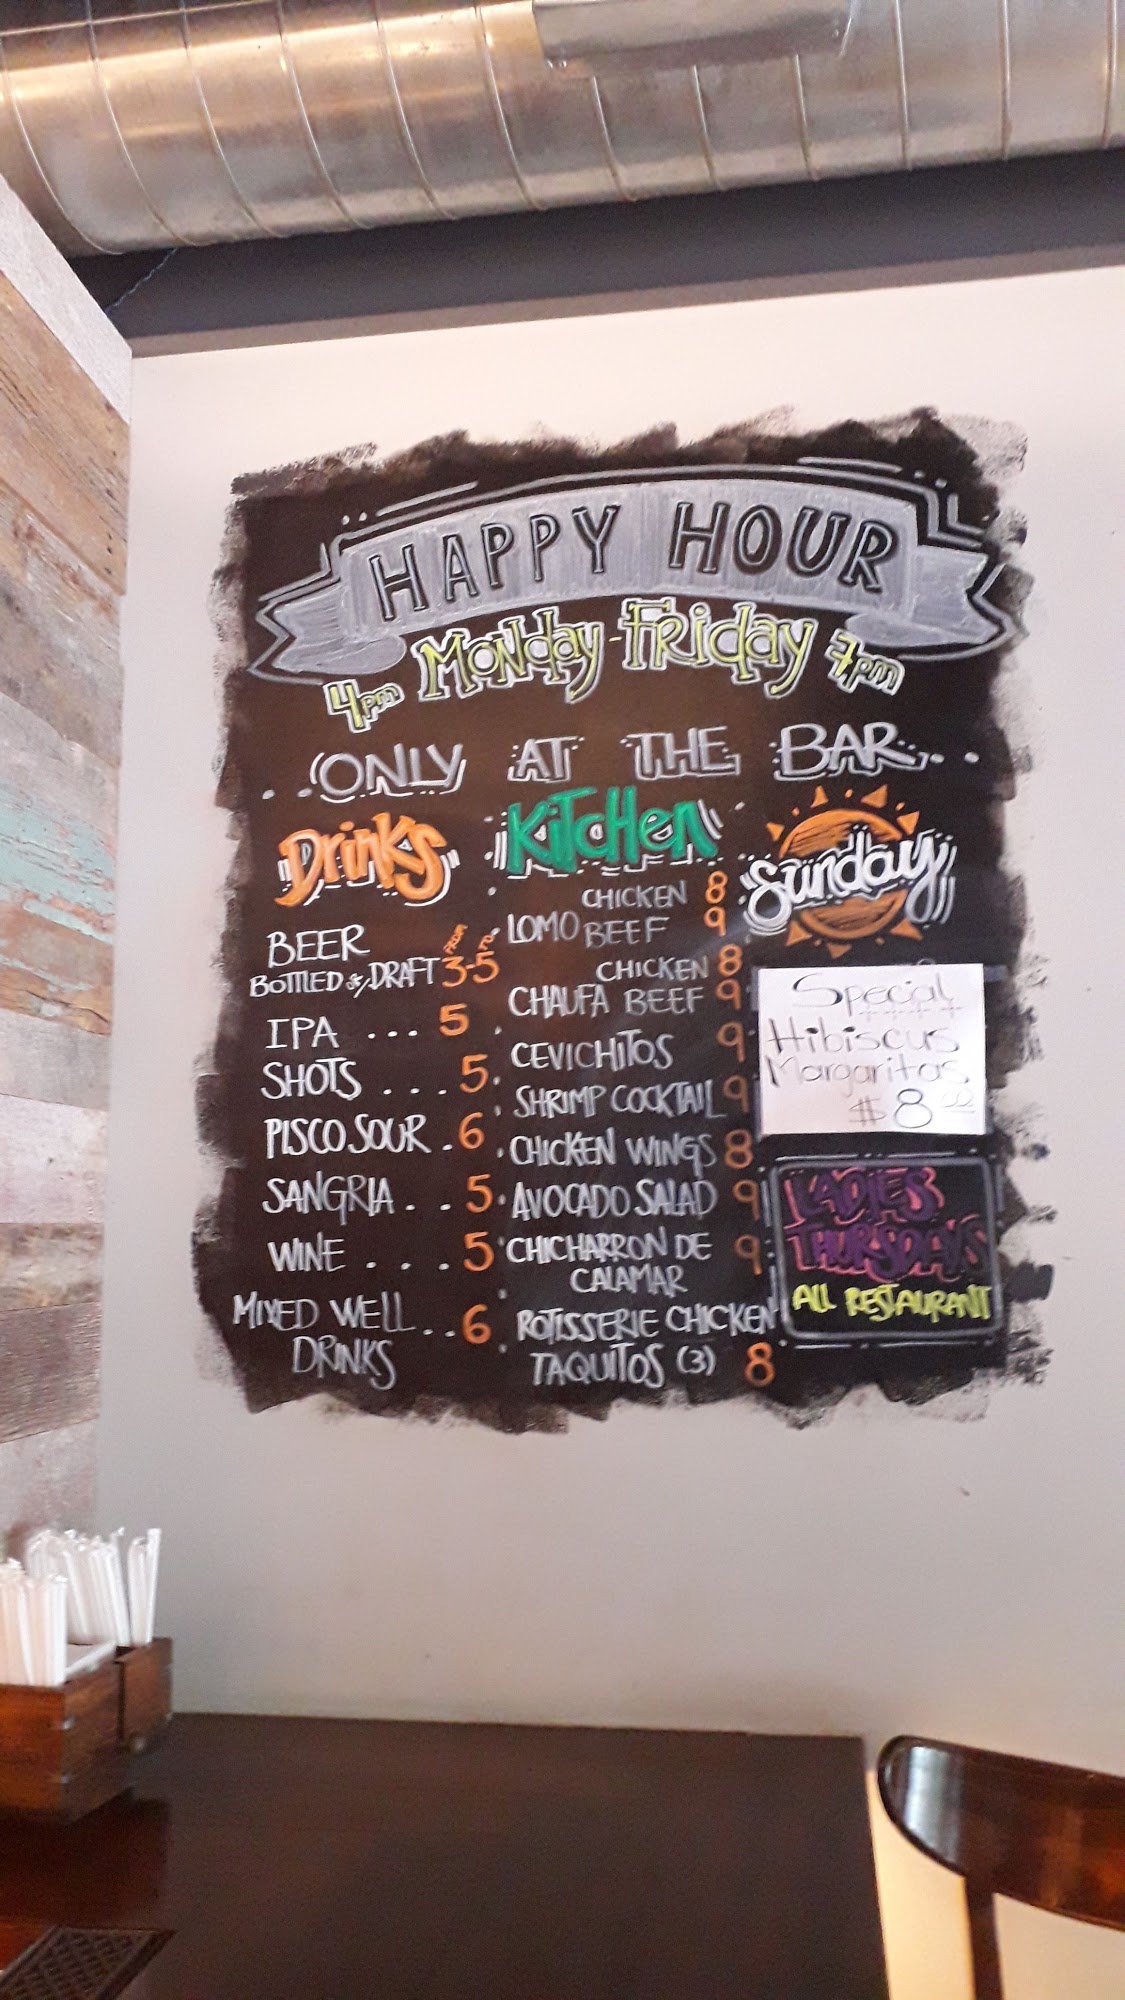 HAPPY HOUR
4pm Monday-Friday 7pm
..ONLY AT THE BAR...
Drinks
BEER FROM TO
BOTTLED &/DRAFT 3-5
IPA ... 5
SHOTS ... 5
PISCO SOUR . 6
SANGRIA . . 5
WINE . . . . 5
MIXED WELL . . 6
DRINKS
Kitchen
CHICKEN 8
LOMO BEEF 9
CHICKEN 8
CHAUFA BEEF 9
CEVICHITOS 9
SHRIMP COCKTAIL 9
CHICKEN WINGS 8
AVOCADO SALAD 9
CHICHARRON DE 9
CALAMAR
ROTISSERIE CHICKEN
TAQUITOS (3) 8
Sunday
Special
Hibiscus
Margaritas
$8
LADIES
THURSDAYS
ALL RESTAURANT